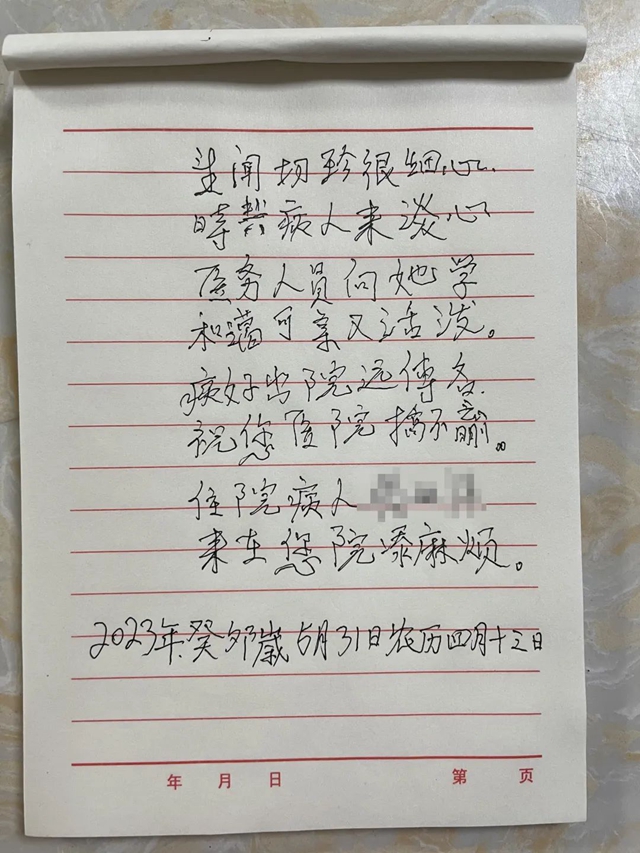 闻切珍很细心.
時 病人来谈心
医务人员向她学
和 可亲又活泼。
病好出院远傳名.
祝您医院搞不 。
住院病人
来在您院 麻烦。
2023年癸卯歲5月31日农历四月十三日
年 月 日 第 页